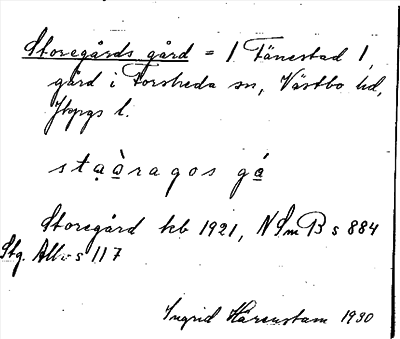 Storegårds gård = 1 Tånestad 1,
gård i Forsheda sn, Västbo hd,
Jkpgs l.
stạạ̀ragos gạ́
Storegård hb 1921, N Sm B s 884
Stg. Allbo s 117
Ingrid Hårenstam 1930